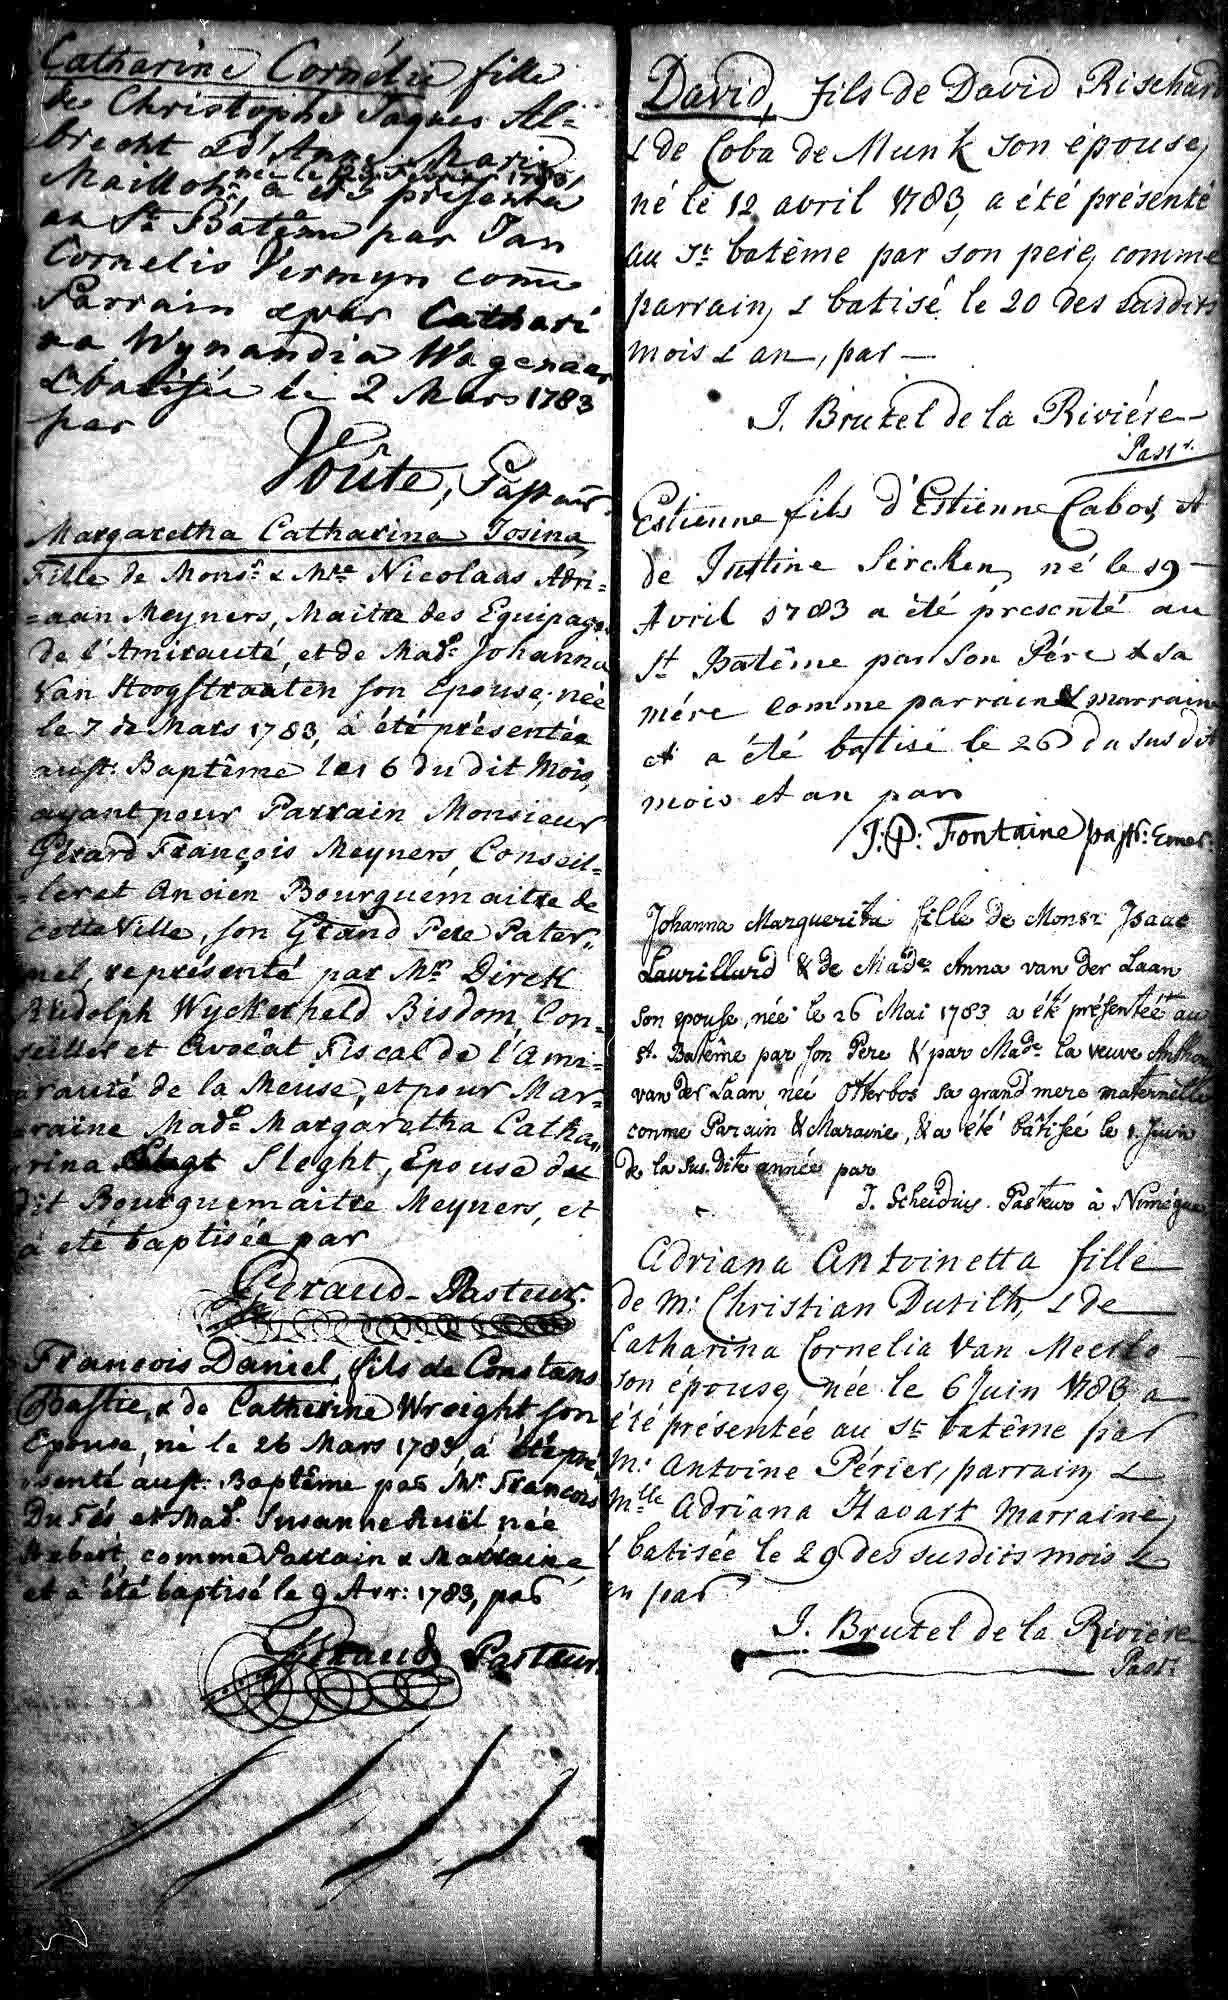 Catharine Cornélie fille
de Christophe Jaques Al=
brecht & d'Anne Marie
née le 23 Fevrier 1783
Maillot, a été présenté
au St Batême par Jan
Cornelis Vermyn come
Parrain & par Cathari
na Wynandia Wagenaar
& batisée le 2 Mars 1783
par
Voûte, Pasteur.
Margaretha Catharina Josina,
Fille de Monsr. & Mre Nicolaas Adri-
=aan Meyners, Maitre des Equipages
de l'Amirauté, et de Made Johanna
Van Hoogstraaten son Epouse, née
le 7 de Mars 1783, à été présentée
au st. Baptême le 16 du dit Mois,
ayant pour Parrain Monsieur
Gérard François Meyners, Conseil-
=ler et Ancien Bourguemaitre de
cette Ville, son Grand Pere Pater-
nel, représenté par Mr Dirck
Rudolph Wyckerheld Bisdom, Con-
seiller et Avocât Fiscal de l'Ami-
rauté de la Meuse, et pour Mar-
=raine Made Margaretha Catha-
rina Sleght, Epouse du
dit Bourguemaitre Meyners, et
a eté baptisée par
Geraud - Pasteur.
François Daniel, fils de Constans
Bastie, & de Catherine Wreight son
Epouse, né le 26 Mars 1783, à été pré-
senté au st. Baptême par Mr. François
Du Fés et Made. Susanne Ruël née
Hebert, comme Parrain & Marraine,
et à été baptisé le 9 Avr: 1783, par
Geraud Pasteur.
David, fils de David Rischard
& de Coba de Munk son épouse,
né le 12 avril 1783, a été présenté
au St. batême par son pere, comme
parrain, & batisé le 20 des susdits
mois & an, par —
J. Brutel de la Riviére —
Past.r
Estienne fils d'Estienne Cabos, et
de Justine Sircken, né le 19
Avril 1783 a été présenté au
St. Batême par son Pére & sa
mére comme parrain & marraine
et a été batisé le 26 du susdit
mois et an par
J: P: Fontaine pastr: Emer:
Johanna Marguerita fille de Monsr Isaac
Laurillard & de Made Anna van der Laan
son epouse, née le 26 Mai 1783 a été présentée au
st. Batême par son Pere & par Made la veuve Anthony
van der Laan née Otterbos sa grand'mere maternelle
comme Parain & Maraine, & a été bâtisée le 1. Juin
de la sus.dite année par
J. Scheidius. Pasteur à Nimégue
Adriana Antoinetta fille
de Mr. Christian Dutilh, & de
Catharina Cornelia Van Meerle
son épouse, née le 6 Juin 1783, a
été présentée au St. batême par
Mr. Antoine Périer, parrain, &
Mlle Adriana Havart marraine,
& batisée le 29 des susdits mois &
an par
J. Brutel de la Riviére
Past.r